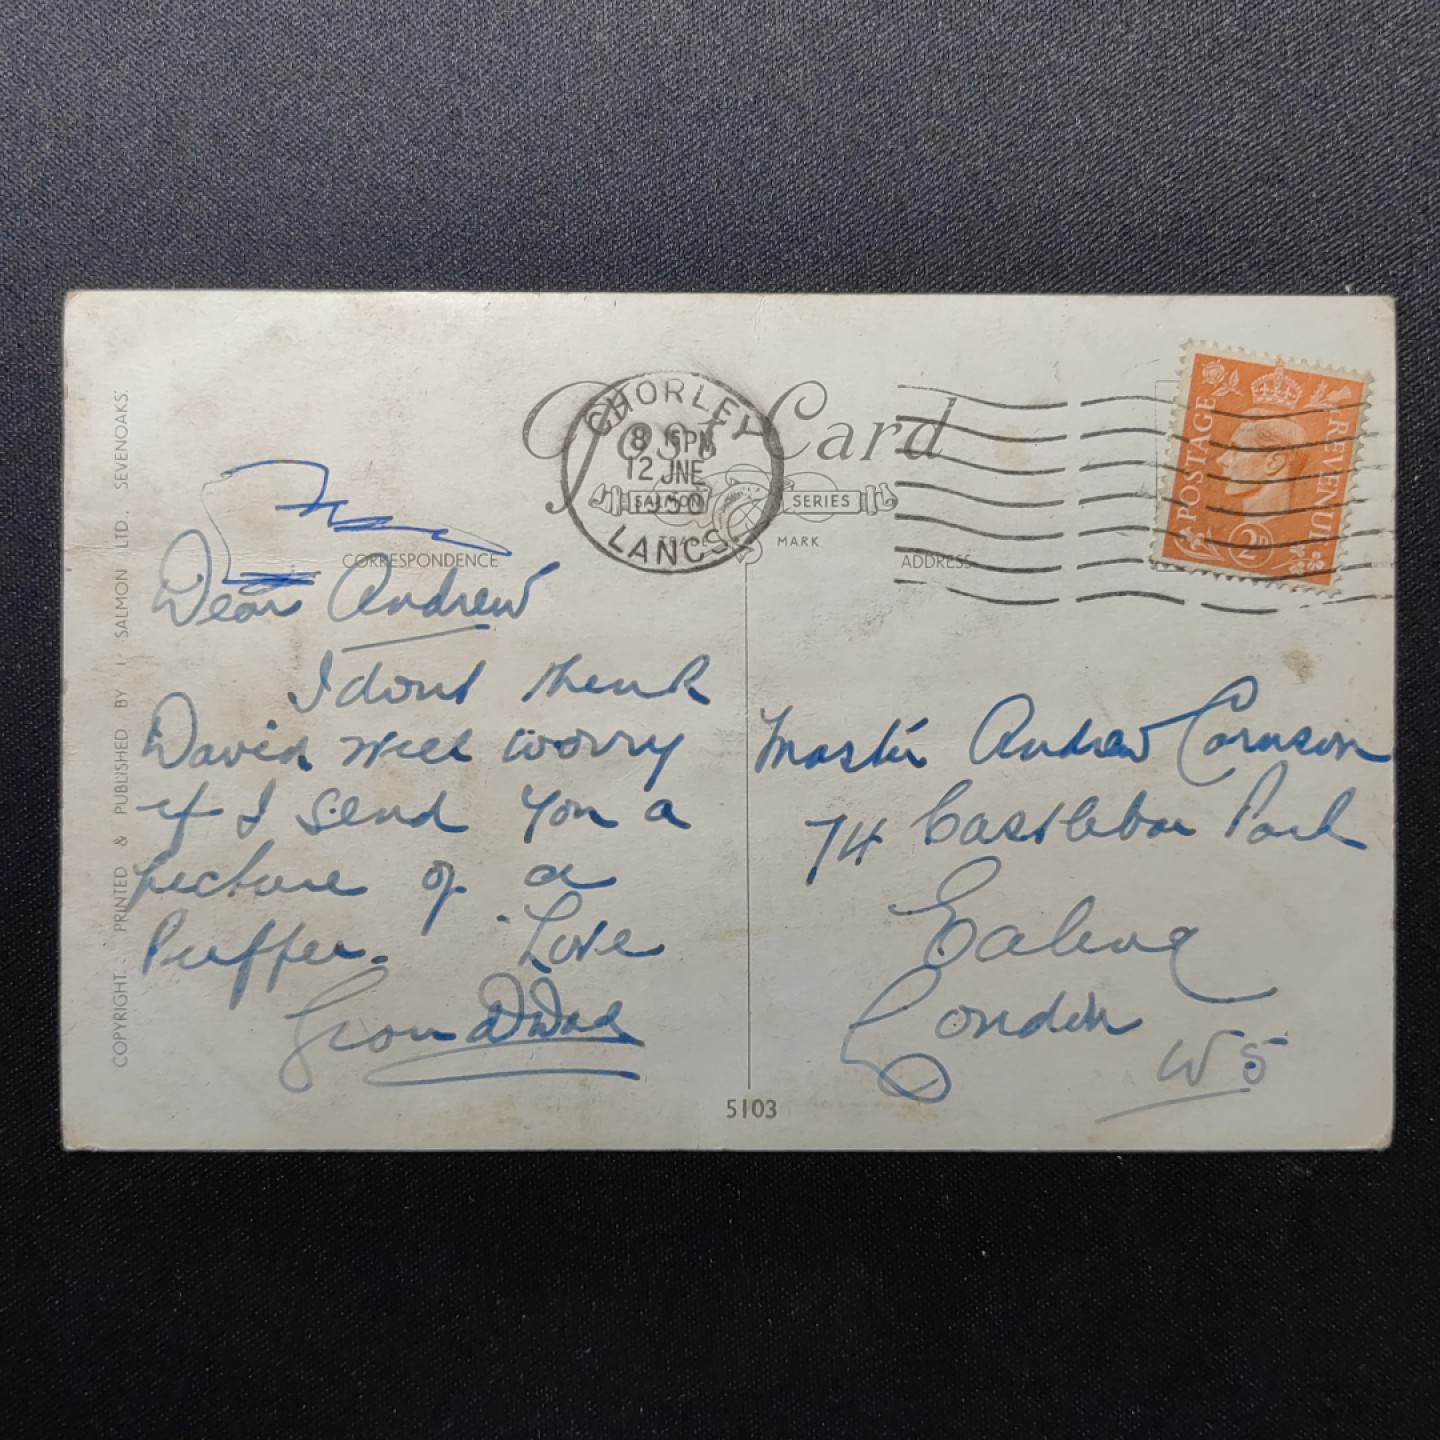 COPYRIGHT. PRINTED & PUBLISHED BY J. SALMON LTD., SEVENOAKS.
Post Card
CHORLEY
8 15PM
12 JNE
1950
LANCS.
SALMON SERIES
TRADE MARK
CORRESPONDENCE
ADDRESS
POSTAGE REVENUE
2D
Dear Andrew
I dont think
David will worry
if I send you a
picture of a
Puffer. Love
Grandad
Master Andrew
74 Castlebar Park
Ealing
London
W5
5103